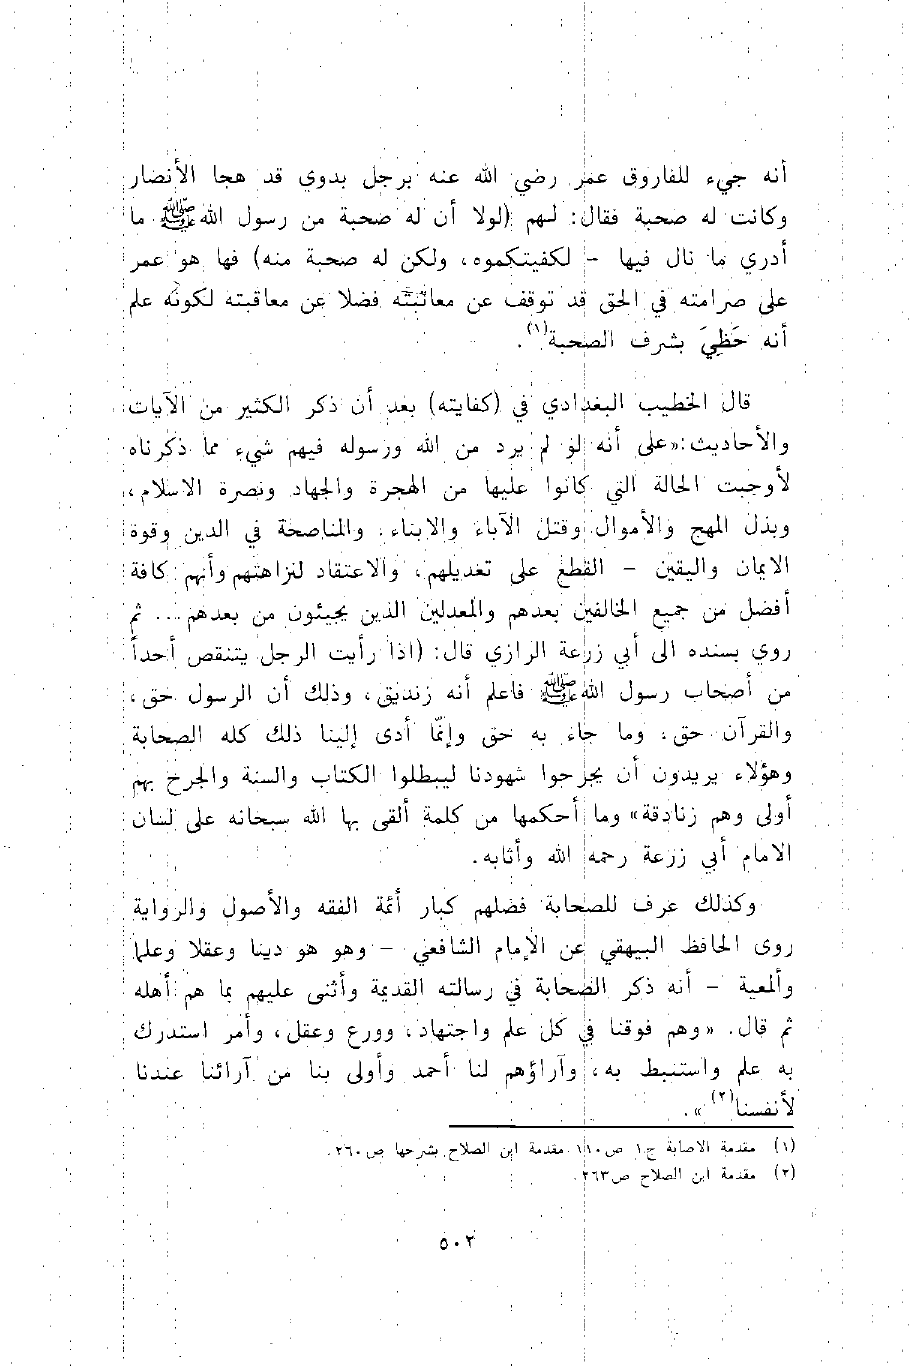 أنه جيء للفاروق عمر رضي الله عنه برجل بدوي قد هجا الأنصار
وكانت له صحبة فقال: لهم (لولا أن له صحبة من رسول الله ﷺ ما
أدري ما نال فيها - لكفيتكموه، ولكن له صحبة منه) فها هو عمر
على صرامته في الحق قد توقف عن معاتبته فضلا عن معاقبته لكونه علم
أنه حَظِيَ بشرف الصحبة(١).
قال الخطيب البغدادي في (كفايته) بعد أن ذكر الكثير من الآيات
والأحاديث: «على أنه لو لم يرد من الله ورسوله فيهم شيء مما ذكرناه
لأوجبت الحالة التي كانوا عليها من الهجرة والجهاد ونصرة الاسلام،
وبذل المهج والأموال وقتل الآباء والابناء، والمناصحة في الدين وقوة
الايمان واليقين - القطع على تعديلهم، والاعتقاد لنزاهتهم وأنهم كافة
أفضل من جميع الخالفين بعدهم والمعدلين الذين يجيئون من بعدهم... ثم
روي بسنده الى أبي زرعة الرازي قال: (اذا رأيت الرجل يتنقص أحداً
من أصحاب رسول الله ﷺ فاعلم أنه زنديق، وذلك أن الرسول حق،
والقرآن حق، وما جاء به حق وإنّما أدى إلينا ذلك كله الصحابة
وهؤلاء يريدون أن يجرحوا شهودنا ليبطلوا الكتاب والسنة والجرح بهم
أولى وهم زنادقة» وما أحكمها من كلمة ألقى بها الله سبحانه على لسان
الامام أبي زرعة رحمه الله وأثابه.
وكذلك عرف للصحابة فضلهم كبار أئمة الفقه والأصول والرواية
روى الحافظ البيهقي عن الإمام الشافعي - وهو هو دينا وعقلا وعلما
وألمعية - أنه ذكر الصحابة في رسالته القديمة وأثنى عليهم بما هم أهله
ثم قال. «وهم فوقنا في كل علم واجتهاد، وورع وعقل، وأمر استدرك
به علم واستنبط به، وآراؤهم لنا أحمد وأولى بنا من آرائنا عندنا
لأنفسنا(٢)».
(١) مقدمة الاصابة ج١ ص١١٠ مقدمة ابن الصلاح بشرحها ص٢٦٠.
(٢) مقدمة ابن الصلاح ص٢٦٣.
٥٠٢